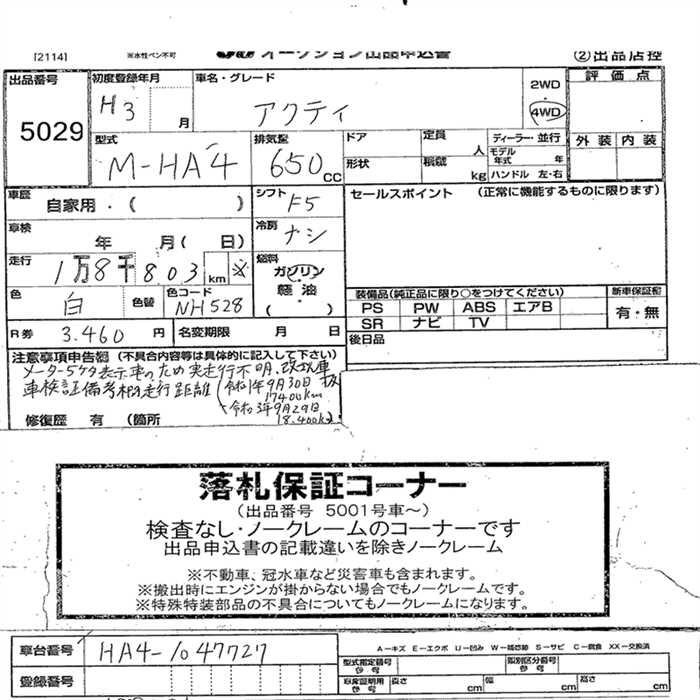 [2114] ※水性ペン不可 オークション出品申込書 ②出品店控
出品番号 初度登録年月 車名・グレード 2WD 評価点
5029 H3 月 アクティ 4WD
型式 排気量 ドア 定員 人 ディーラー・並行 外装 内装
M-HA4 650 CC 形状 積載 kg モデル年式 年
ハンドル 左・右
車歴 自家用・( ) シフト F5 セールスポイント (正常に機能するものに限ります)
車検 年 月( 日) 冷房 ナシ
走行 1万8千803 km ※ 燃料 ガソリン
軽油
( )
色 白 色替 色コード NH528
装備品(純正品に限り○をつけてください) 新車保証書
PS PW ABS エアB 有・無
SR ナビ TV
R券 3.460 円 名変期限 月 日 後日品
注意事項申告欄 (不具合内容等は具体的に記入して下さい)
メーター5ケタ表示車のため実走行不明、改ザン車
車検証備考欄走行距離 (令和1年9月30日
17400km
令和3年9月29日
18.400km)
修復歴 有 (箇所
落札保証コーナー
(出品番号 5001号車~)
検査なし・ノークレームのコーナーです
出品申込書の記載違いを除きノークレーム
※不動車、冠水車など災害車も含まれます。
※搬出時にエンジンが掛からない場合でもノークレームです。
※特殊特装部品の不具合についてもノークレームになります。
車台番号 HA4-1047727 A−キズ E−エクボ U−凹み W−補修跡 S−サビ C−腐食 XX−交換済
型式指定番号 参考 類別区分番号 参考
登録番号 車庫証明用 参考 長さ cm 幅 cm 高さ cm